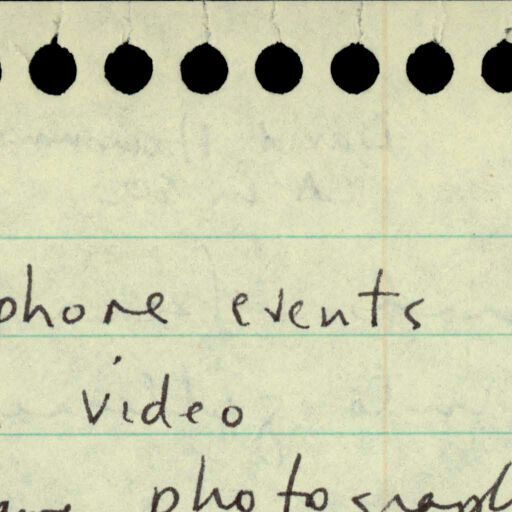 phone events
video
photograph